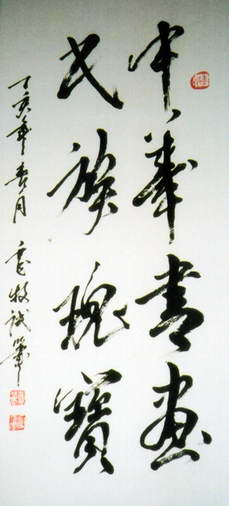 中華書画
民族瑰寶
丁亥年春月 試筆